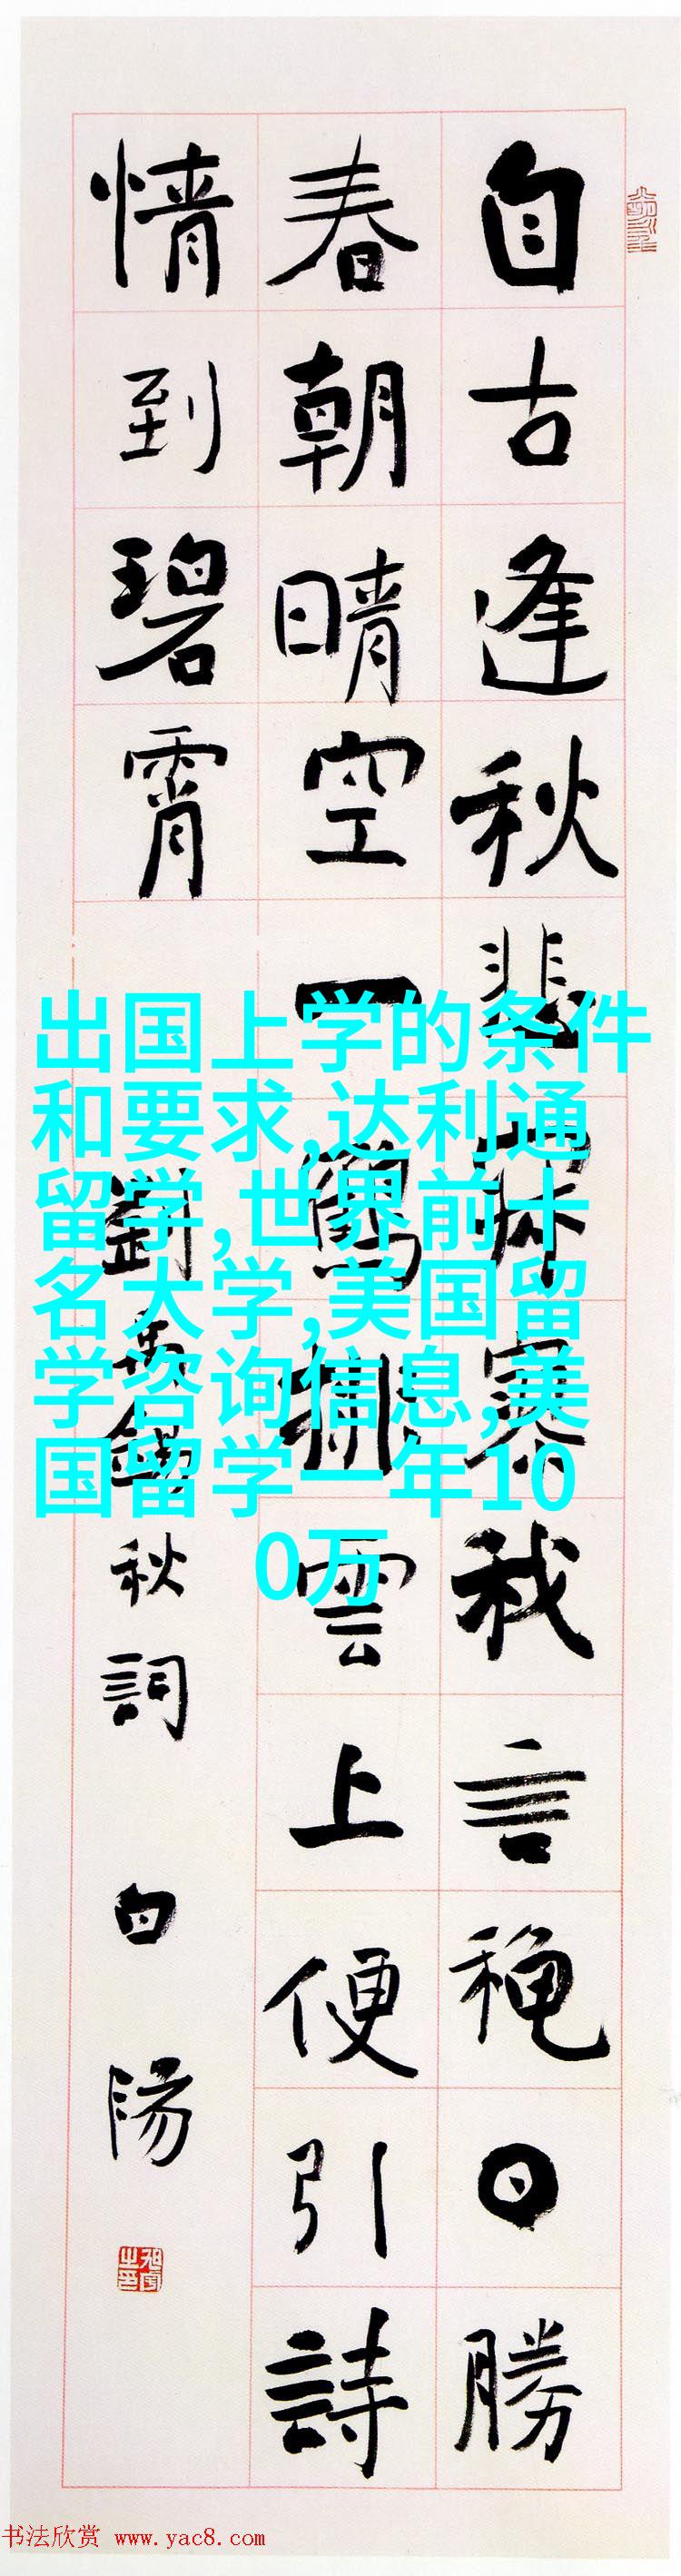 自古逢秋悲寂寥我言穐日勝
春朝晴空一鶴排雲上便引詩
情到碧霄
劉禹錫秋詞 白陽
出国上学的条件
和要求,达利通
留学,世界前十
名大学,美国留
学咨询信息,美
国留学一年10
0万
书法欣赏 www.yac8.com